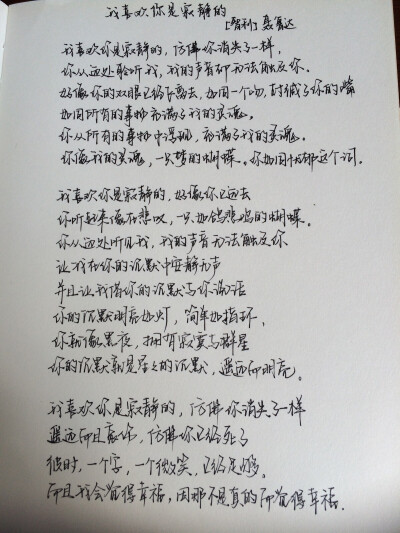 我喜欢你是寂静的
[智利] 聂鲁达
我喜欢你是寂静的，仿佛你消失了一样，
你从远处聆听我，我的声音却无法触及你。
好像你的双眼已经飞离去，如同一个吻，封缄了你的嘴
如同所有的事物充满了我的灵魂。
你从所有的事物中浮现，充满了我的灵魂。
你像我的灵魂，一只梦的蝴蝶。你如同忧郁这个词。
我喜欢你是寂静的，好像你已远去
你听起来像在悲叹，一只如鸽悲鸣的蝴蝶。
你从远处听见我，我的声音无法触及你
让我在你的沉默中安静无声
并且让我借你的沉默与你说话
你的沉默明亮如灯，简单如指环，
你就像黑夜，拥有寂寞与群星
你的沉默就是星星的沉默，遥远而明亮。
我喜欢你是寂静的，仿佛你消失了一样
遥远而且哀伤，仿佛你已经死了
彼时，一个字，一个微笑，已经足够。
而且我会觉得幸福，因那不是真的而觉得幸福.